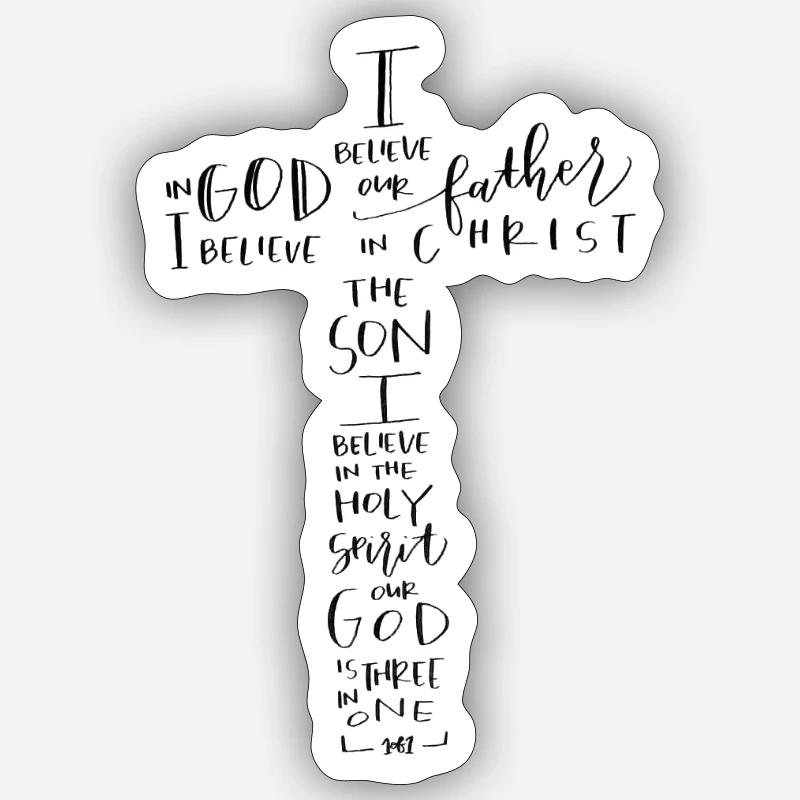 I
BELIEVE
IN GOD OUR father
I BELIEVE IN CHRIST
THE
SON
I
BELIEVE
IN THE
HOLY
Spirit
OUR
GOD
IS THREE
IN
ONE
1of1